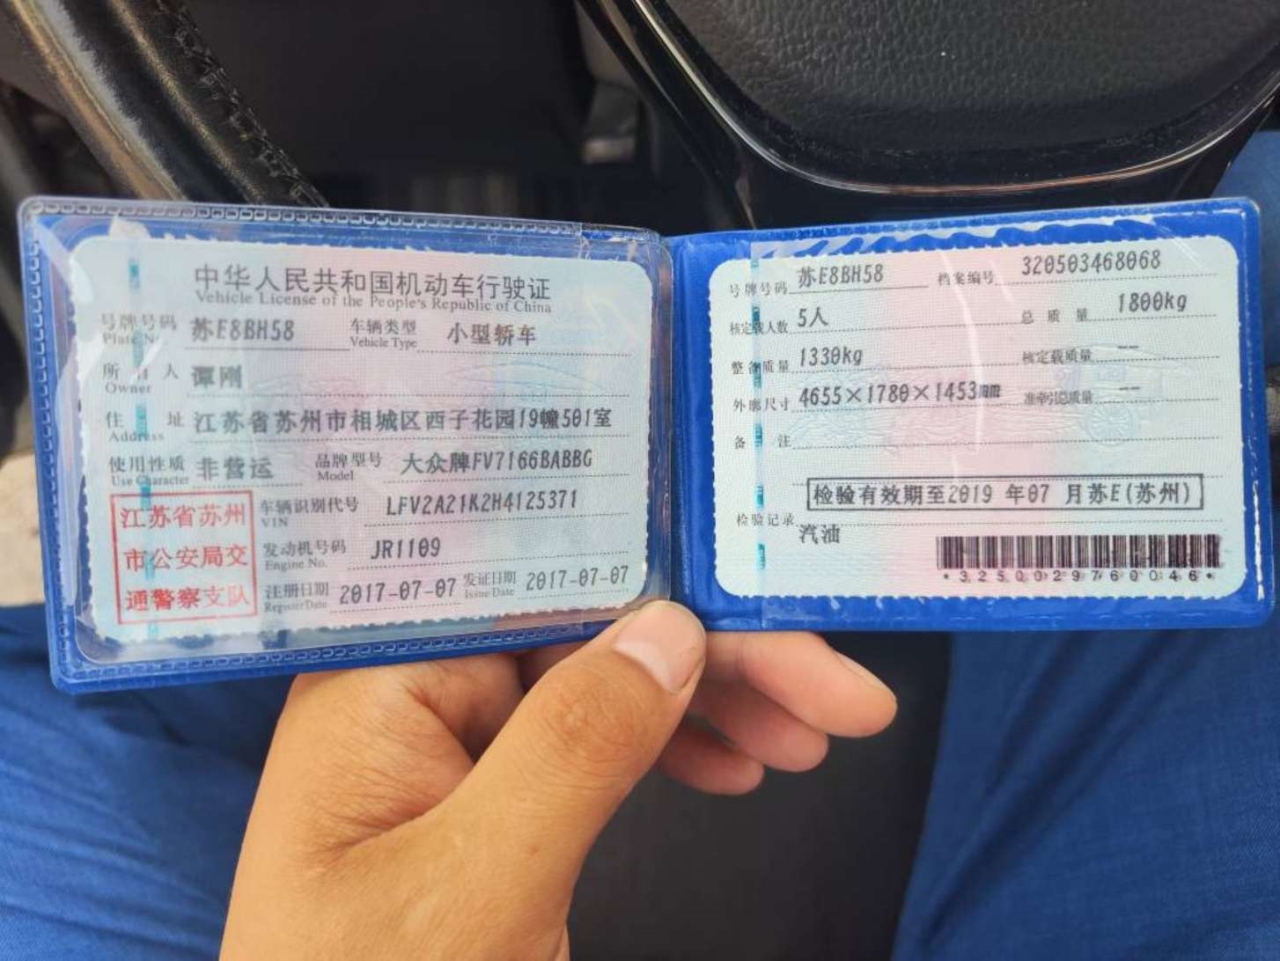 中华人民共和国机动车行驶证
Vehicle License of the People's Republic of China
号牌号码 苏E8BH58 车辆类型 小型轿车
Plate No. Vehicle Type
所有人 谭刚
Owner
住址 江苏省苏州市相城区西子花园19幢501室
Address
使用性质 非营运 品牌型号 大众牌FV7166BABBG
Use Character Model
江苏省苏州
市公安局交
通警察支队
车辆识别代号 LFV2A21K2H4125371
VIN
发动机号码 JR1109
Engine No.
注册日期 2017-07-07 发证日期 2017-07-07
Register Date Issue Date
号牌号码 苏E8BH58 档案编号 320503468068
核定载人数 5人 总质量 1800kg
整备质量 1330kg 核定载质量 --
外廓尺寸 4655×1780×1453mm 准牵引总质量 --
备注
检验有效期至2019年07月苏E(苏州)
检验记录
汽油
*3250029760046*